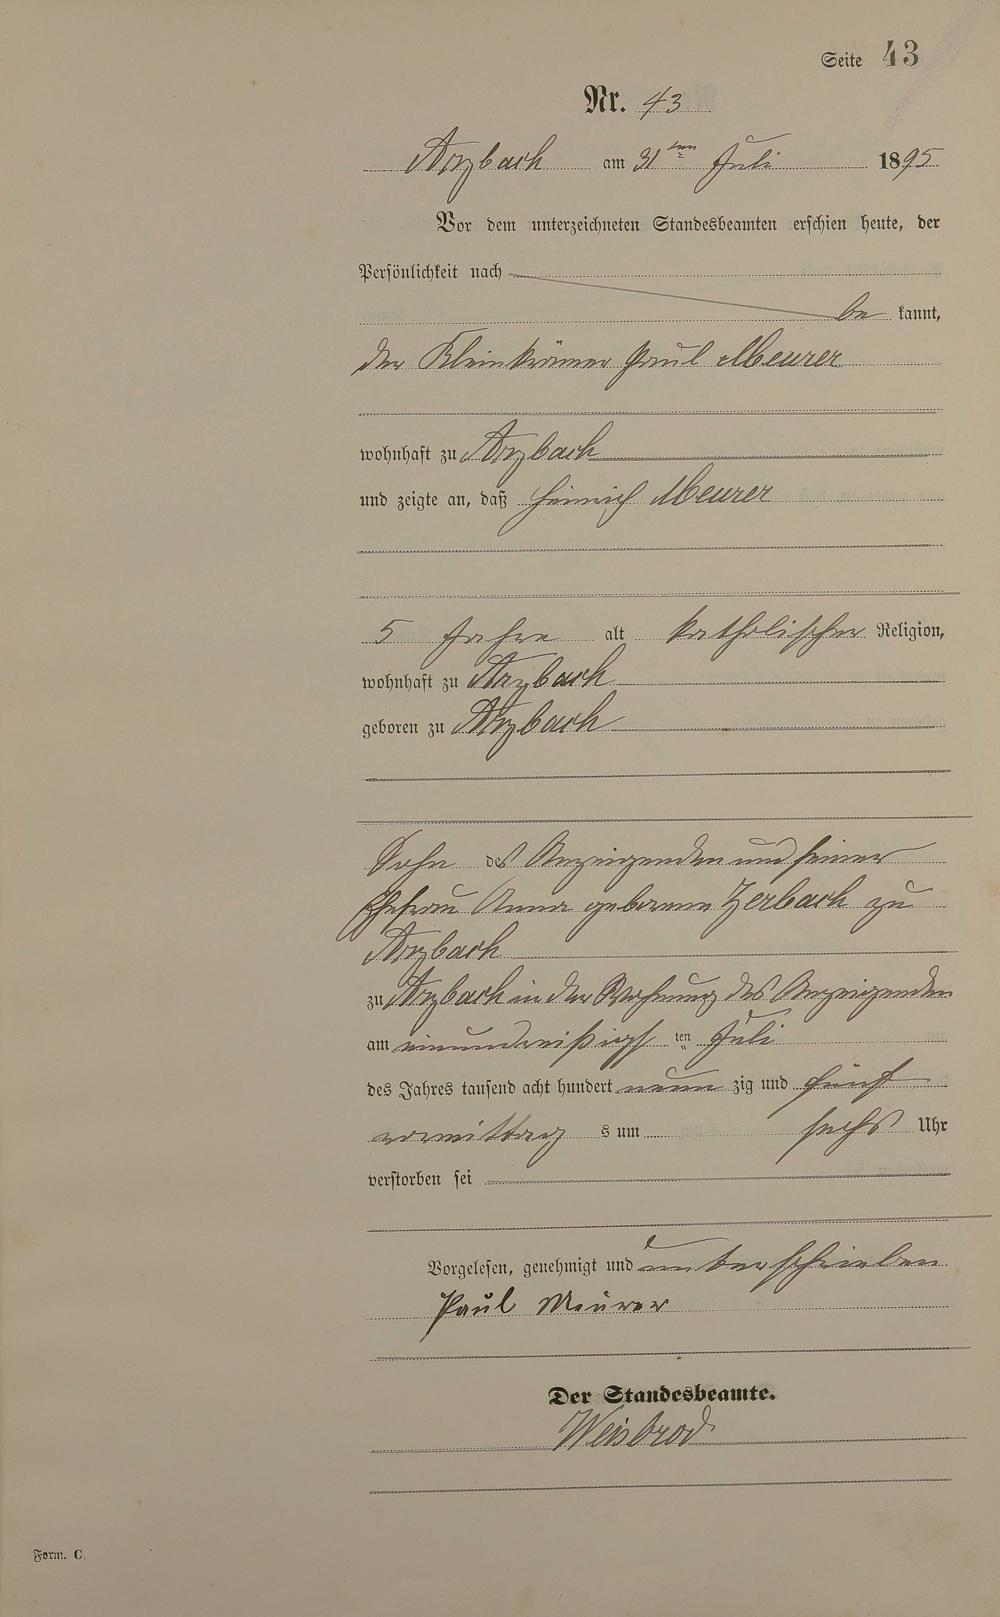 Seite 43
Nr. 43
Arzbach am 31ten Juli 1895
Vor dem unterzeichneten Standesbeamten erschien heute, der
Persönlichkeit nach
be kannt,
der Kleinkrämer Paul Meurer
wohnhaft zu Arzbach
und zeigte an, daß Heinrich Meurer
5 Jahre alt katholischer Religion,
wohnhaft zu Arzbach
geboren zu Arzbach
Sohn des Anzeigenden und seiner
Ehefrau Anna geborene Zerbach zu
Arzbach
zu Arzbach in der Wohnung des Anzeigenden
am einundreißigs ten Juli
des Jahres tausend acht hundert neun zig und fünf
vormittag s um sechs Uhr
verstorben sei
Vorgelesen, genehmigt und unterschrieben
Paul Meurer
Der Standesbeamte.
Weisbrod
Form. C.